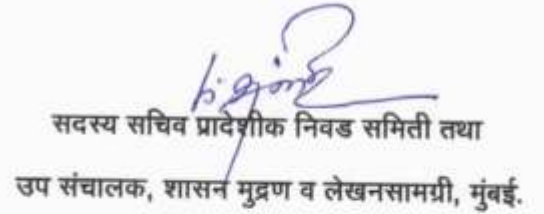 सदस्य सचिव प्रादेशीक निवड समिती तथा
उप संचालक, शासन मुद्रण व लेखनसामग्री, मुंबई.